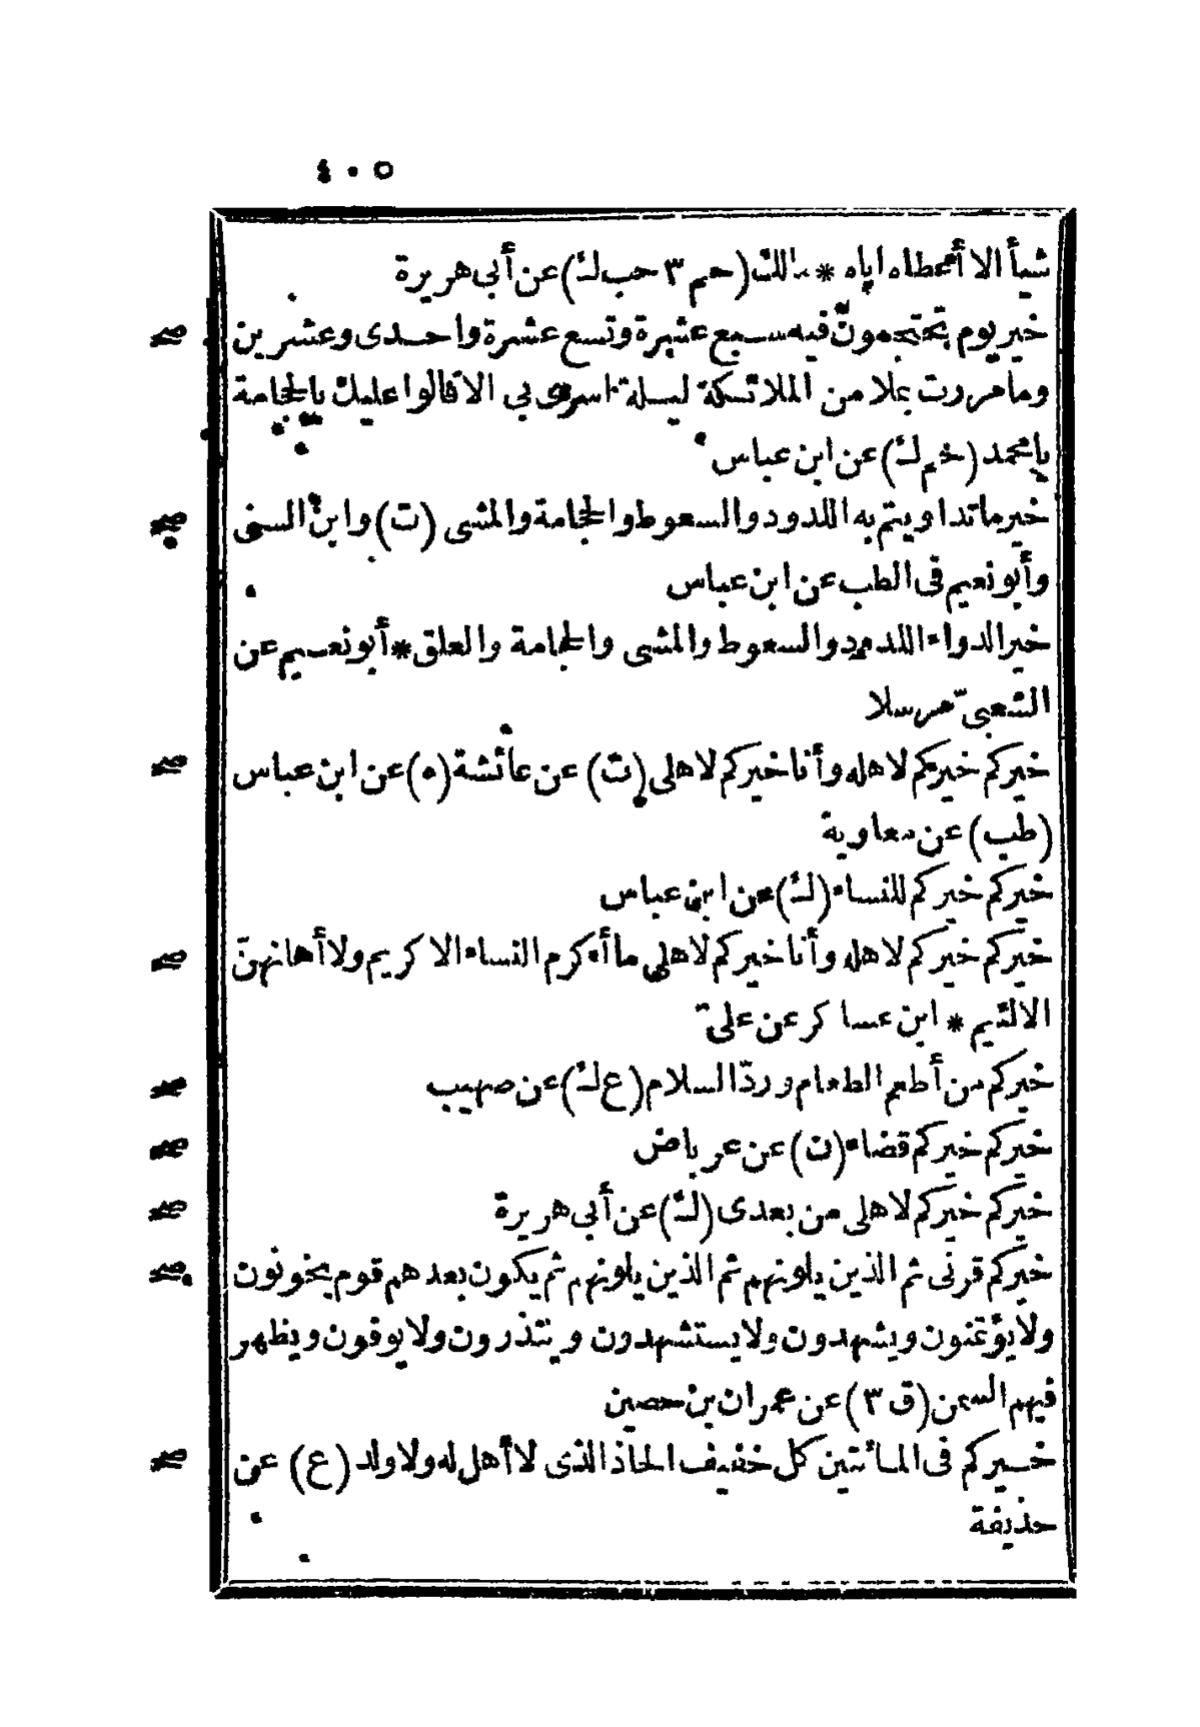 ٤٠٥
شيأ الا أعطاه اياه * مالك (حم ٣ حب ك) عن أبى هريرة
خير يوم تحتجمون فيه سبع عشرة وتسع عشرة واحدى وعشرين صح
وما مررت بملا من الملائكة ليلة اسرى بى الا قالوا عليك بالحجامة
يا محمد (حم ك) عن ابن عباس
خير ما تداويتم به اللدود والسعوط والحجامة والمشى (ت) وابن السنى صح
وأبو نعيم فى الطب عن ابن عباس
خير الدواء اللدود والسعوط والمشى والحجامة والعلق * أبو نعيم عن
الشعبىّ مرسلا
خيركم خيركم لاهله وأنا خيركم لاهلى (ت) عن عائشة (ه) عن ابن عباس صح
(طب) عن معاوية
خيركم خيركم للنساء (ك) عن ابن عباس
خيركم خيركم لاهله وأنا خيركم لاهلى ما أكرم النساء الا كريم ولا أهانهنّ صح
الا لئيم * ابن عساكر عن على
خيركم من أطعم الطعام وردّ السلام (ع ك) عن صهيب صح
خيركم خيركم قضاء (ن) عن عرباض صح
خيركم خيركم لاهلى من بعدى (ك) عن أبى هريرة صح
خيركم قرنى ثم الذين يلونهم ثم الذين يلونهم ثم يكون بعدهم قوم يخونون صح
ولا يؤتمنون ويشهدون ولا يستشهدون وينذرون ولا يوفون ويظهر
فيهم السمن (ق ٣) عن عمران بن حصين
خيركم فى المائتين كل خفيف الحاذ الذى لا أهل له ولا ولد (ع) عن صح
حذيفة